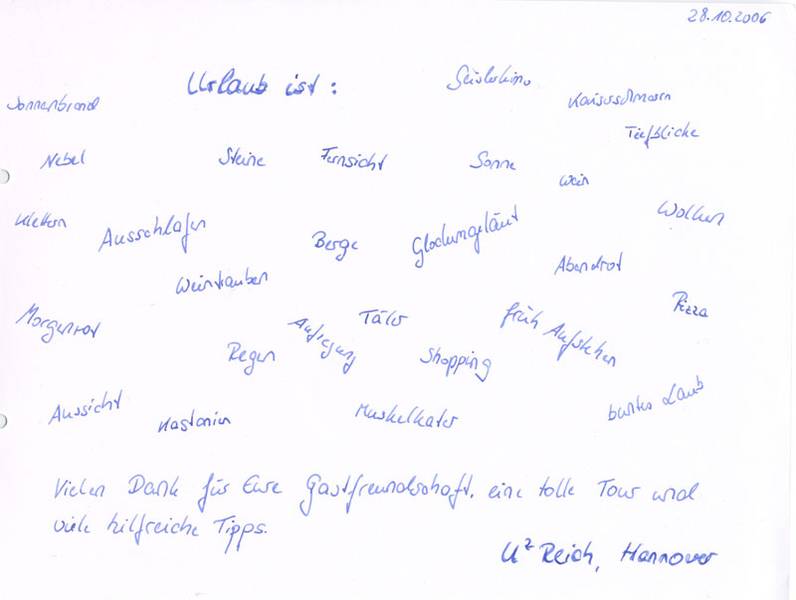 28.10.2006
Urlaub ist:
Geislerkino
Sonnenbrand
Kaiserschmarrn
Tiefblicke
Nebel
Steine
Fernsicht
Sonne
Wein
Klettern
Ausschlafen
Berge
Glockengeläut
Wolken
Weintrauben
Abendrot
Morgenrot
Aufregung
Täler
früh Aufstehen
Pizza
Regen
Shopping
Aussicht
Kastanien
Muskelkater
buntes Laub
Vielen Dank für Eure Gastfreundschaft, eine tolle Tour und
viele hilfreiche Tipps.
U² Reich, Hannover